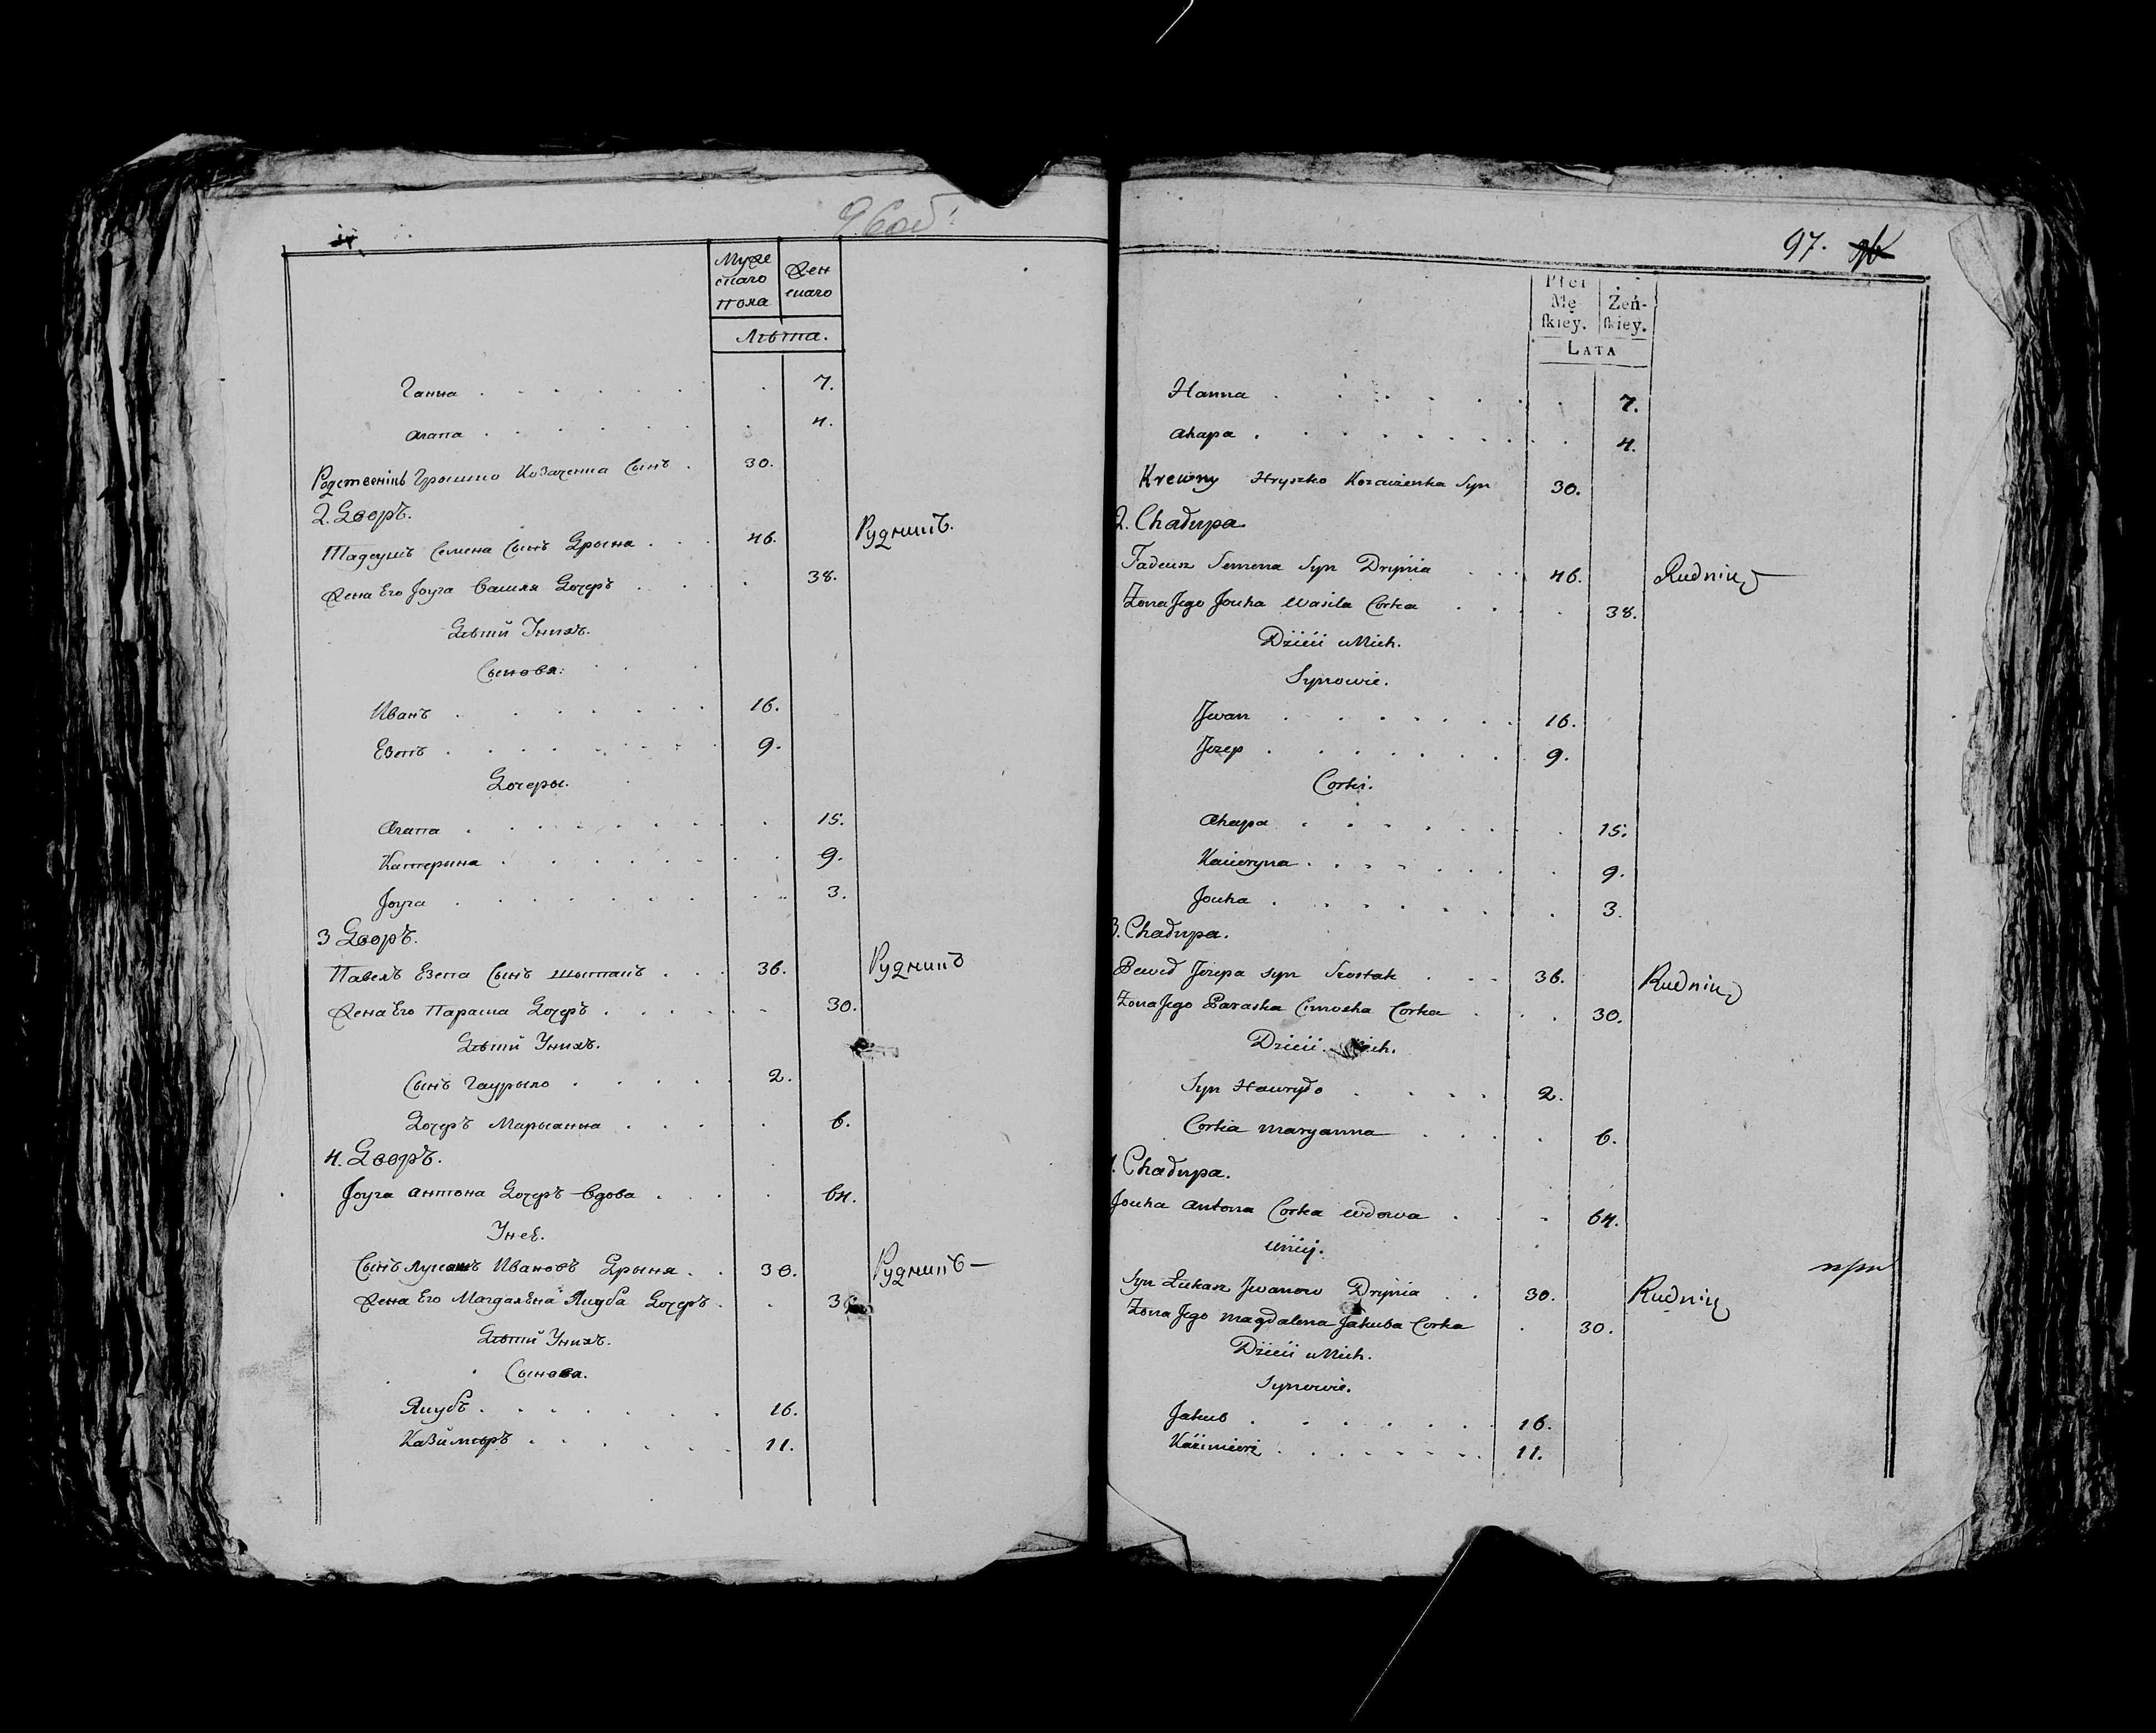 96об.
Муже
скаго
пола
Жен
скаго
Лѣта.
Ганна 7.
Агапа 4.
Родственикъ Грышко Козаченка Сынъ 30.
2. Дворъ.
Тадеушъ Семена Сынъ Дрыня 46. Рудникъ.
Жена Его Йоуга Василя Дочеръ 38.
Дѣтй Унихъ.
Сыновя.
Иванъ 16.
Езепъ 9.
Дочеры.
Агапа 15.
Катерына 9.
Йоуга 3.
3 Дворъ.
Павелъ Езепа Сынъ 36. Рудникъ
Жена Его Параска Дочеръ 30.
Дѣтй Унихъ.
Сынъ Гаурыло 2.
Дочеръ Марыанна 6.
4. Дворъ.
Йоуга антона Дочеръ Вдова 64.
Унеѣ.
Сынъ Лукашъ Ивановъ Дрыня 30. Рудникъ
Жена Его Магдалѣна Якуба Дочеръ
Дѣтй Унихъ.
Сынова.
Якубъ 16.
Казймѣръ 11.
97.
Płci
Mę-
ſkiey.
Żeń-
ſkiey.
LATA
Hanna 7.
Ahapa 4.
Krewny Hryszko Kozaczenka Syn 30.
2. Chałupa
Tadeusz Semena Syn Drynia 46. Rudnik
Żona Jego Jouha Wasila Corka 38.
Dzieci u Nich.
Synowie.
Jwan 16.
Jezep 9.
Corki.
Ahapa 15.
Kateryna 9.
Jouha 3.
3. Chałupa.
Paweł Jezepa syn Szostak 36. Rudnik
Żona Jego Paraska Cimoszka Corka 30.
Dzieci Nich.
Syn Hawryło 2.
Corka Maryanna 6.
Chałupa.
Jouha antona Corka wdowa 64.
u niej.
Syn Łukasz Jwanow Drynia 30. Rudnik
Żona Jego Magdalena Jakuba Corka 30.
Dzieci u Nich.
Synowie.
Jakub 16.
Kazimierz 11.